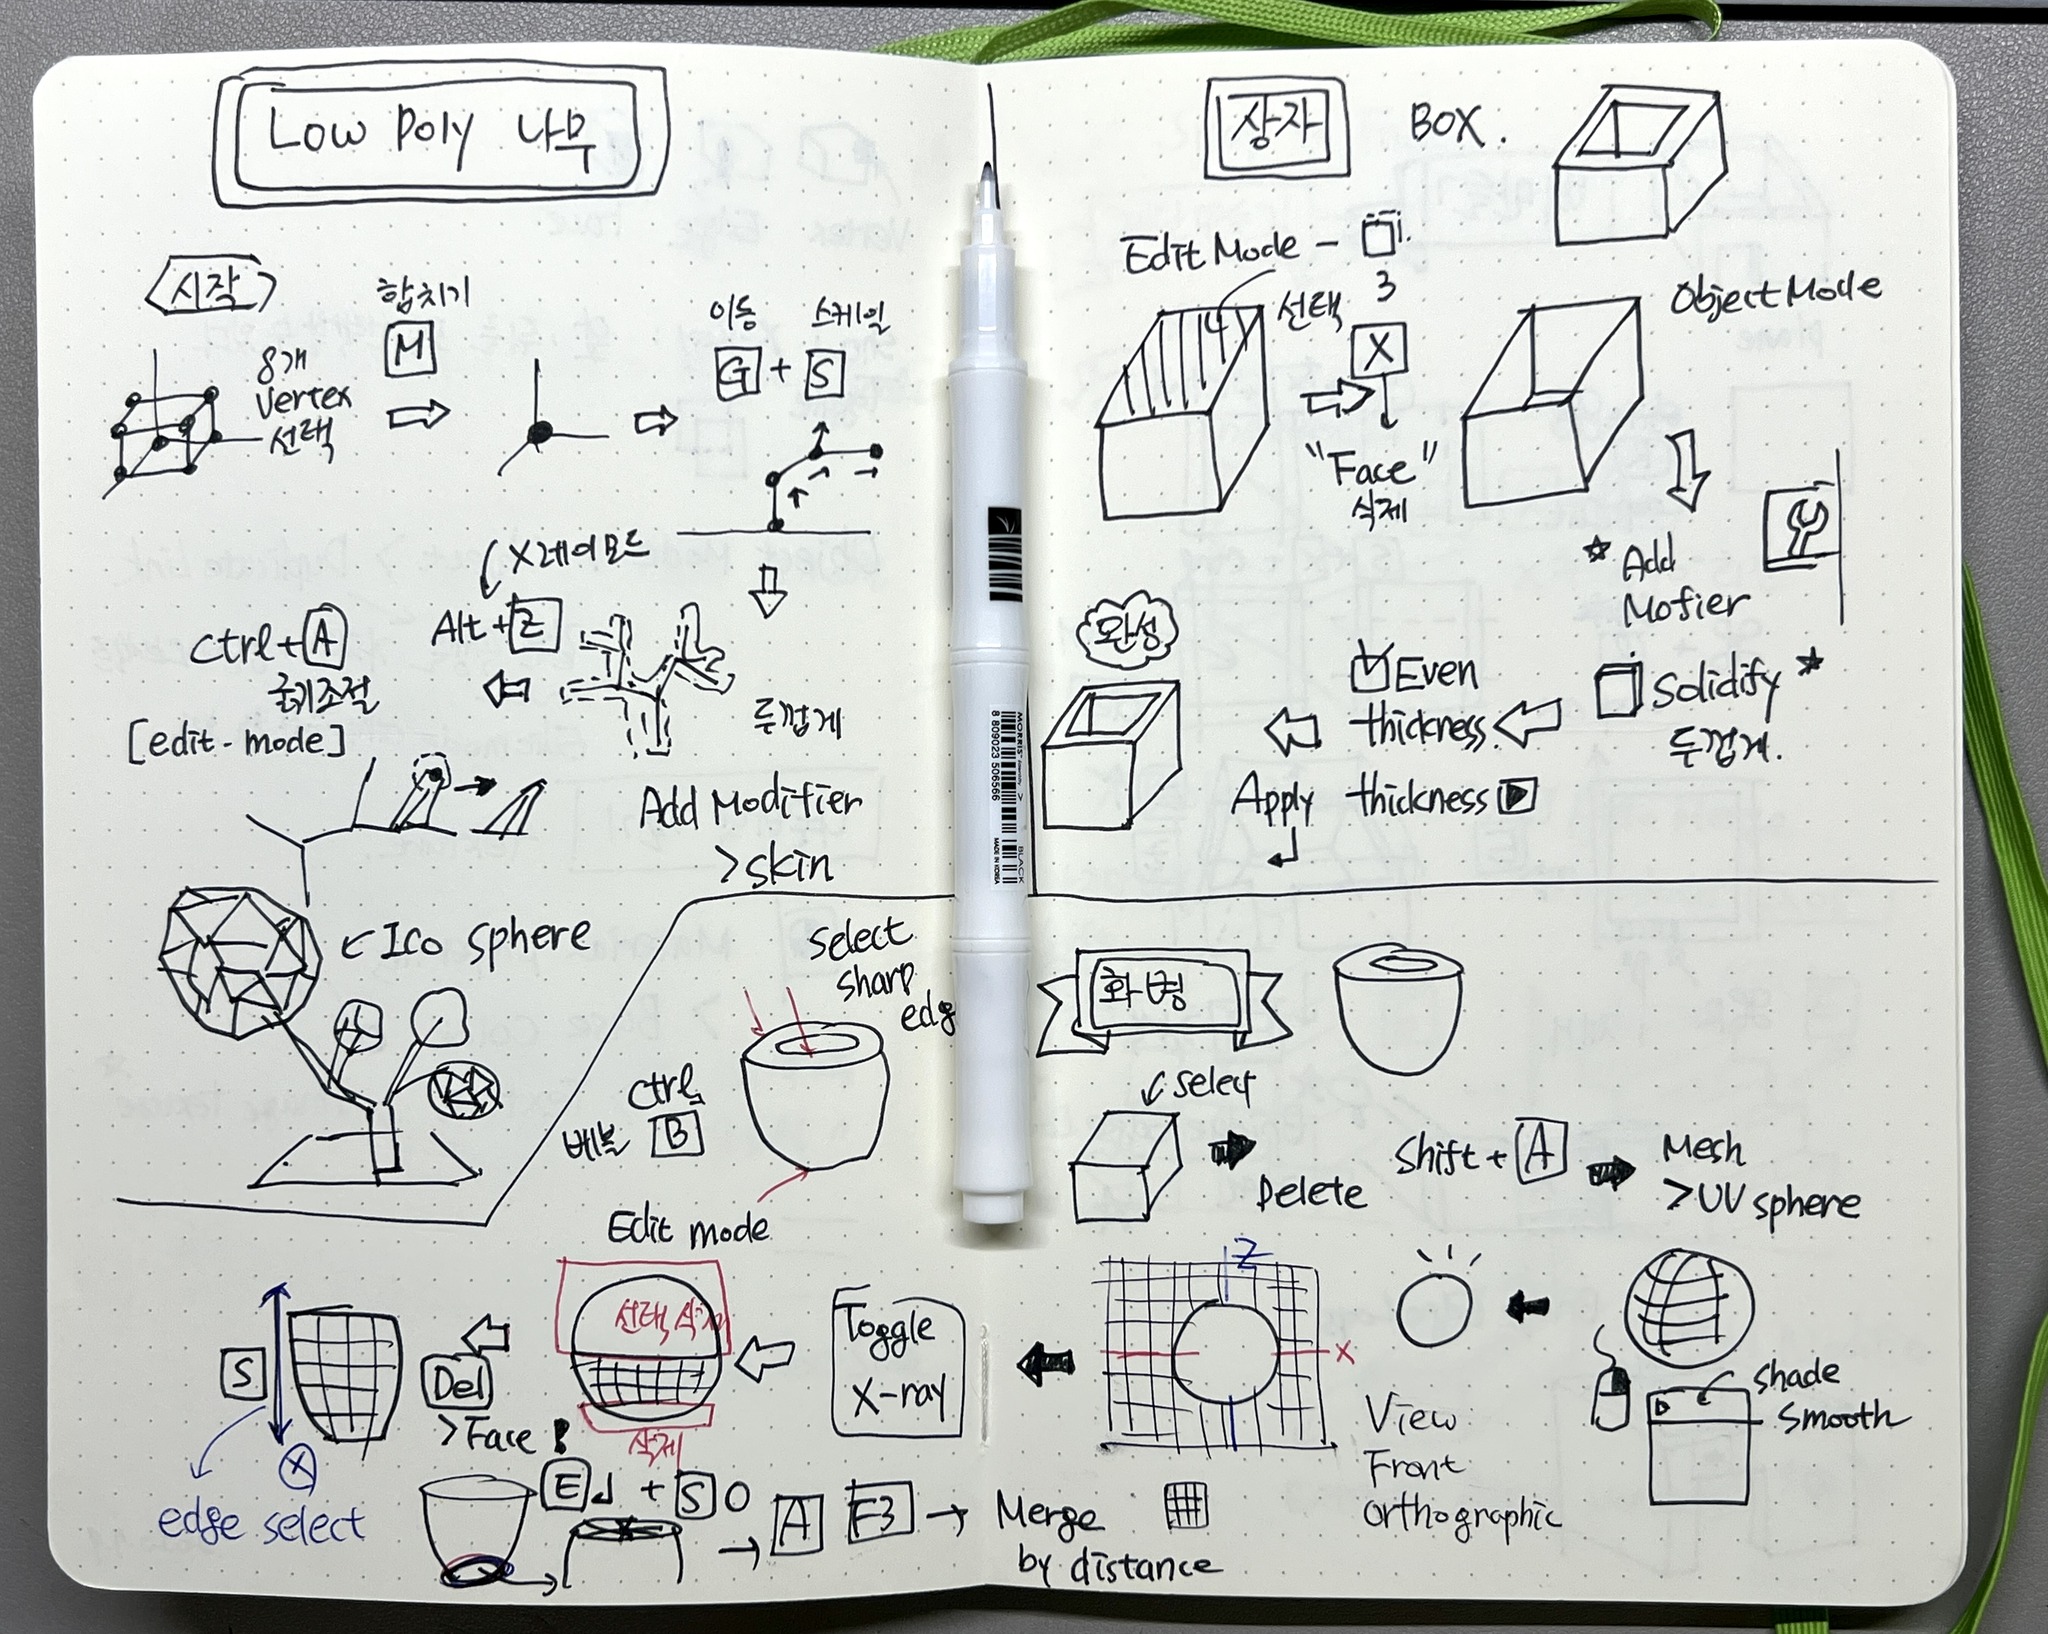 Low Poly 나무
시작
8개
Vertex
선택
합치기
M
이동 스케일
G + S
X레이모드
Alt + Z
두껍게
Add Modifier
>skin
Ctrl + A
크기조절
[edit-mode]
<Ico sphere
상자 BOX.
Edit Mode -
3
선택
X
"Face"
삭제
Object Mode
* Add
Mofier
Solidify *
두껍게.
Even
thickness
Apply thickness
완성
화병
select
Delete
Shift + A
Mesh
>UV sphere
shade
smooth
View
Front
orthographic
Z
X
Toggle
X-ray
Edit mode
선택, 삭제
삭제
Del
>Face
S
X
edge select
E + S 0
A F3
Merge
by distance
select
sharp
edg
Ctrl
베벨 B
MORRIS
8 809023 506566
BLACK
MADE IN KOREA